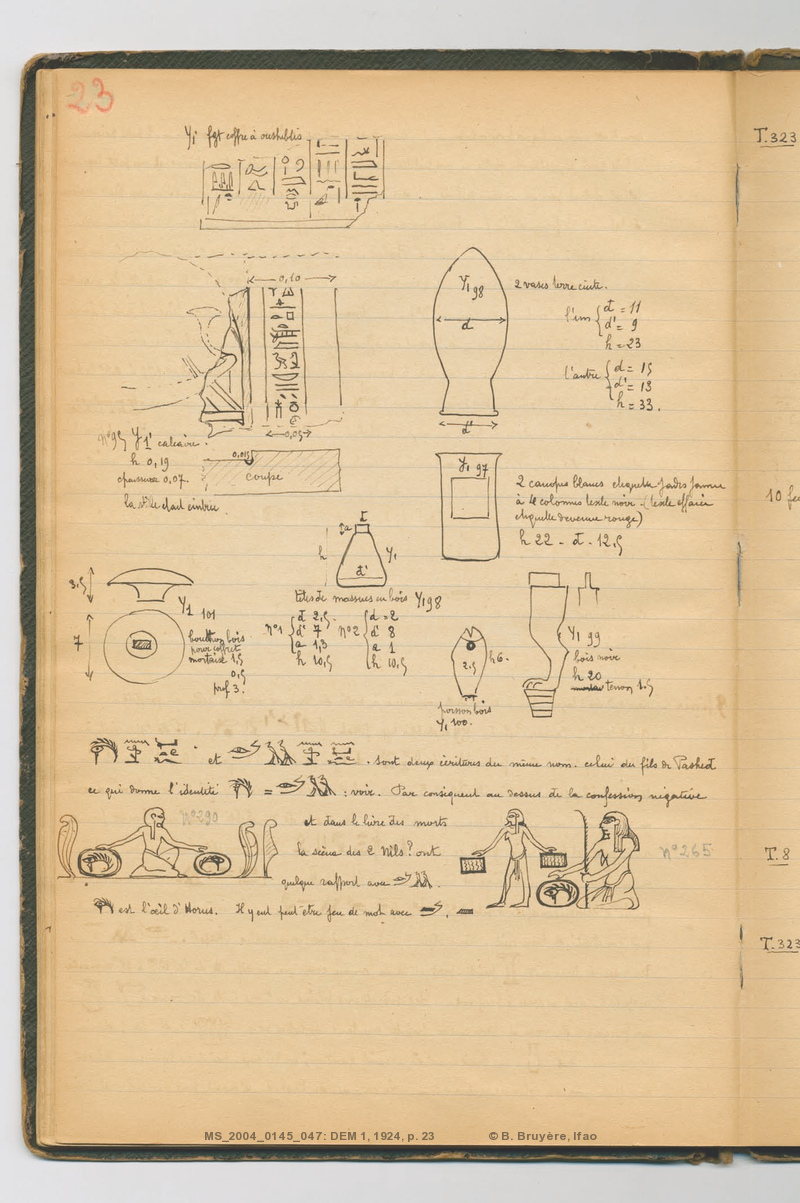 23
Y1 fgt coffre à oushebtis
T.323
0,10
Y1 98
d
d'
2 vases terre cuite.
l'un { d = 11
d' = 9
h = 23
l'autre { d = 15
d' = 13
h = 33.
0,05
calcaire.
h 0,19
épaisseur 0,07.
0,015
coupe
Y1 97
2 canopes blancs etiquette jadis jaune
à 4 colonnes texte noir - (texte effacé
etiquette devenue rouge)
h 22 - d - 12,5
10
a
h
d'
Y1
3,5
Y1 101
7
bouchon bois
pour coffret
mortaise 1,5
0,5
prof 3.
têtes de massues en bois Y1 98
n°1 { d 2,5
d' 7
a 1,3
h 10,5
n°2 { d = 2
d' 8
a 1
h 10,5
2,5
h 6.
poisson bois
Y1 100.
Y1 99
bois noir
h 20
tenon 1.5
et
. sont deux écritures du même nom. celui du fils de Pashed
ce qui donne l'identité
=
: voir. Par conséquent au dessus de la confession négative
n°290
et dans le livre des morts
la scène des 2 Nils? ont
quelque rapport avec
n°265
T.8
est l'œil d'Horus. Il y eut peut etre jeu de mot avec
T.323
MS_2004_0145_047: DEM 1, 1924, p. 23
© B. Bruyère, Ifao